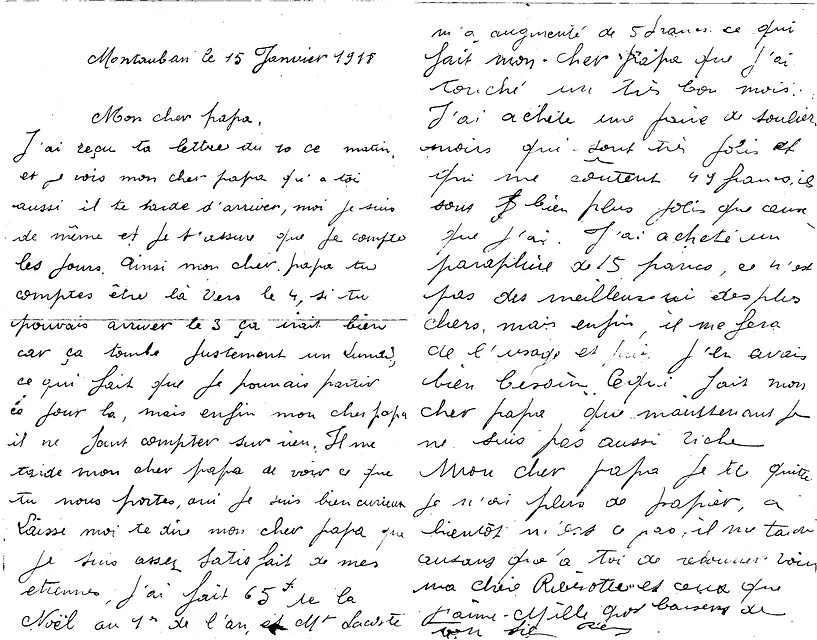 Montauban le 15 Janvier 1918
Mon cher papa,
J'ai reçu ta lettre du 10 ce matin,
et je vois mon cher papa qu'a toi
aussi il te tarde d'arriver, moi je suis
de même et je t'assure que je compte
les jours. Ainsi mon cher papa tu
comptes être là vers le 4, si tu
pouvais arriver le 3 ça irait bien
car ça tombe justement un Lundi,
ce qui fait que je pourrais partir
ce jour la, mais enfin mon cher papa
il ne faut compter sur rien. Il me
tarde mon cher papa de voir ce que
tu nous portes, oui je suis bien curieux
Laisse moi te dire mon cher papa que
je suis assez satisfait de mes
etrennes, j'ai fait 65 f de la
Noël au 1er de l'an, et Mr Lacoste
m'a augmenté de 5 francs ce qui
fait mon cher papa que j'ai
touché un très bon mois.
J'ai achète une paire de soulier
noirs qui sont très jolis et
qui me coutent 49 francs, il
sont bien plus jolis que ceux
que j'ai. J'ai acheté un
parapluie de 15 francs, ce n'est
pas des meilleurs ni des plus
chers, mais enfin, il me fera
de l'usage et puis j'en avais
bien besoin. Ce qui fait mon
cher papa que maintenant je
ne suis pas aussi riche
Mon cher papa je te quitte
je n'ai plus de papier, a
bientôt n'est ce pas, il me tarde
autant qu'a toi de retourner voir
ma chère et ceux que
j'aime. Mille gros baisers de
ton